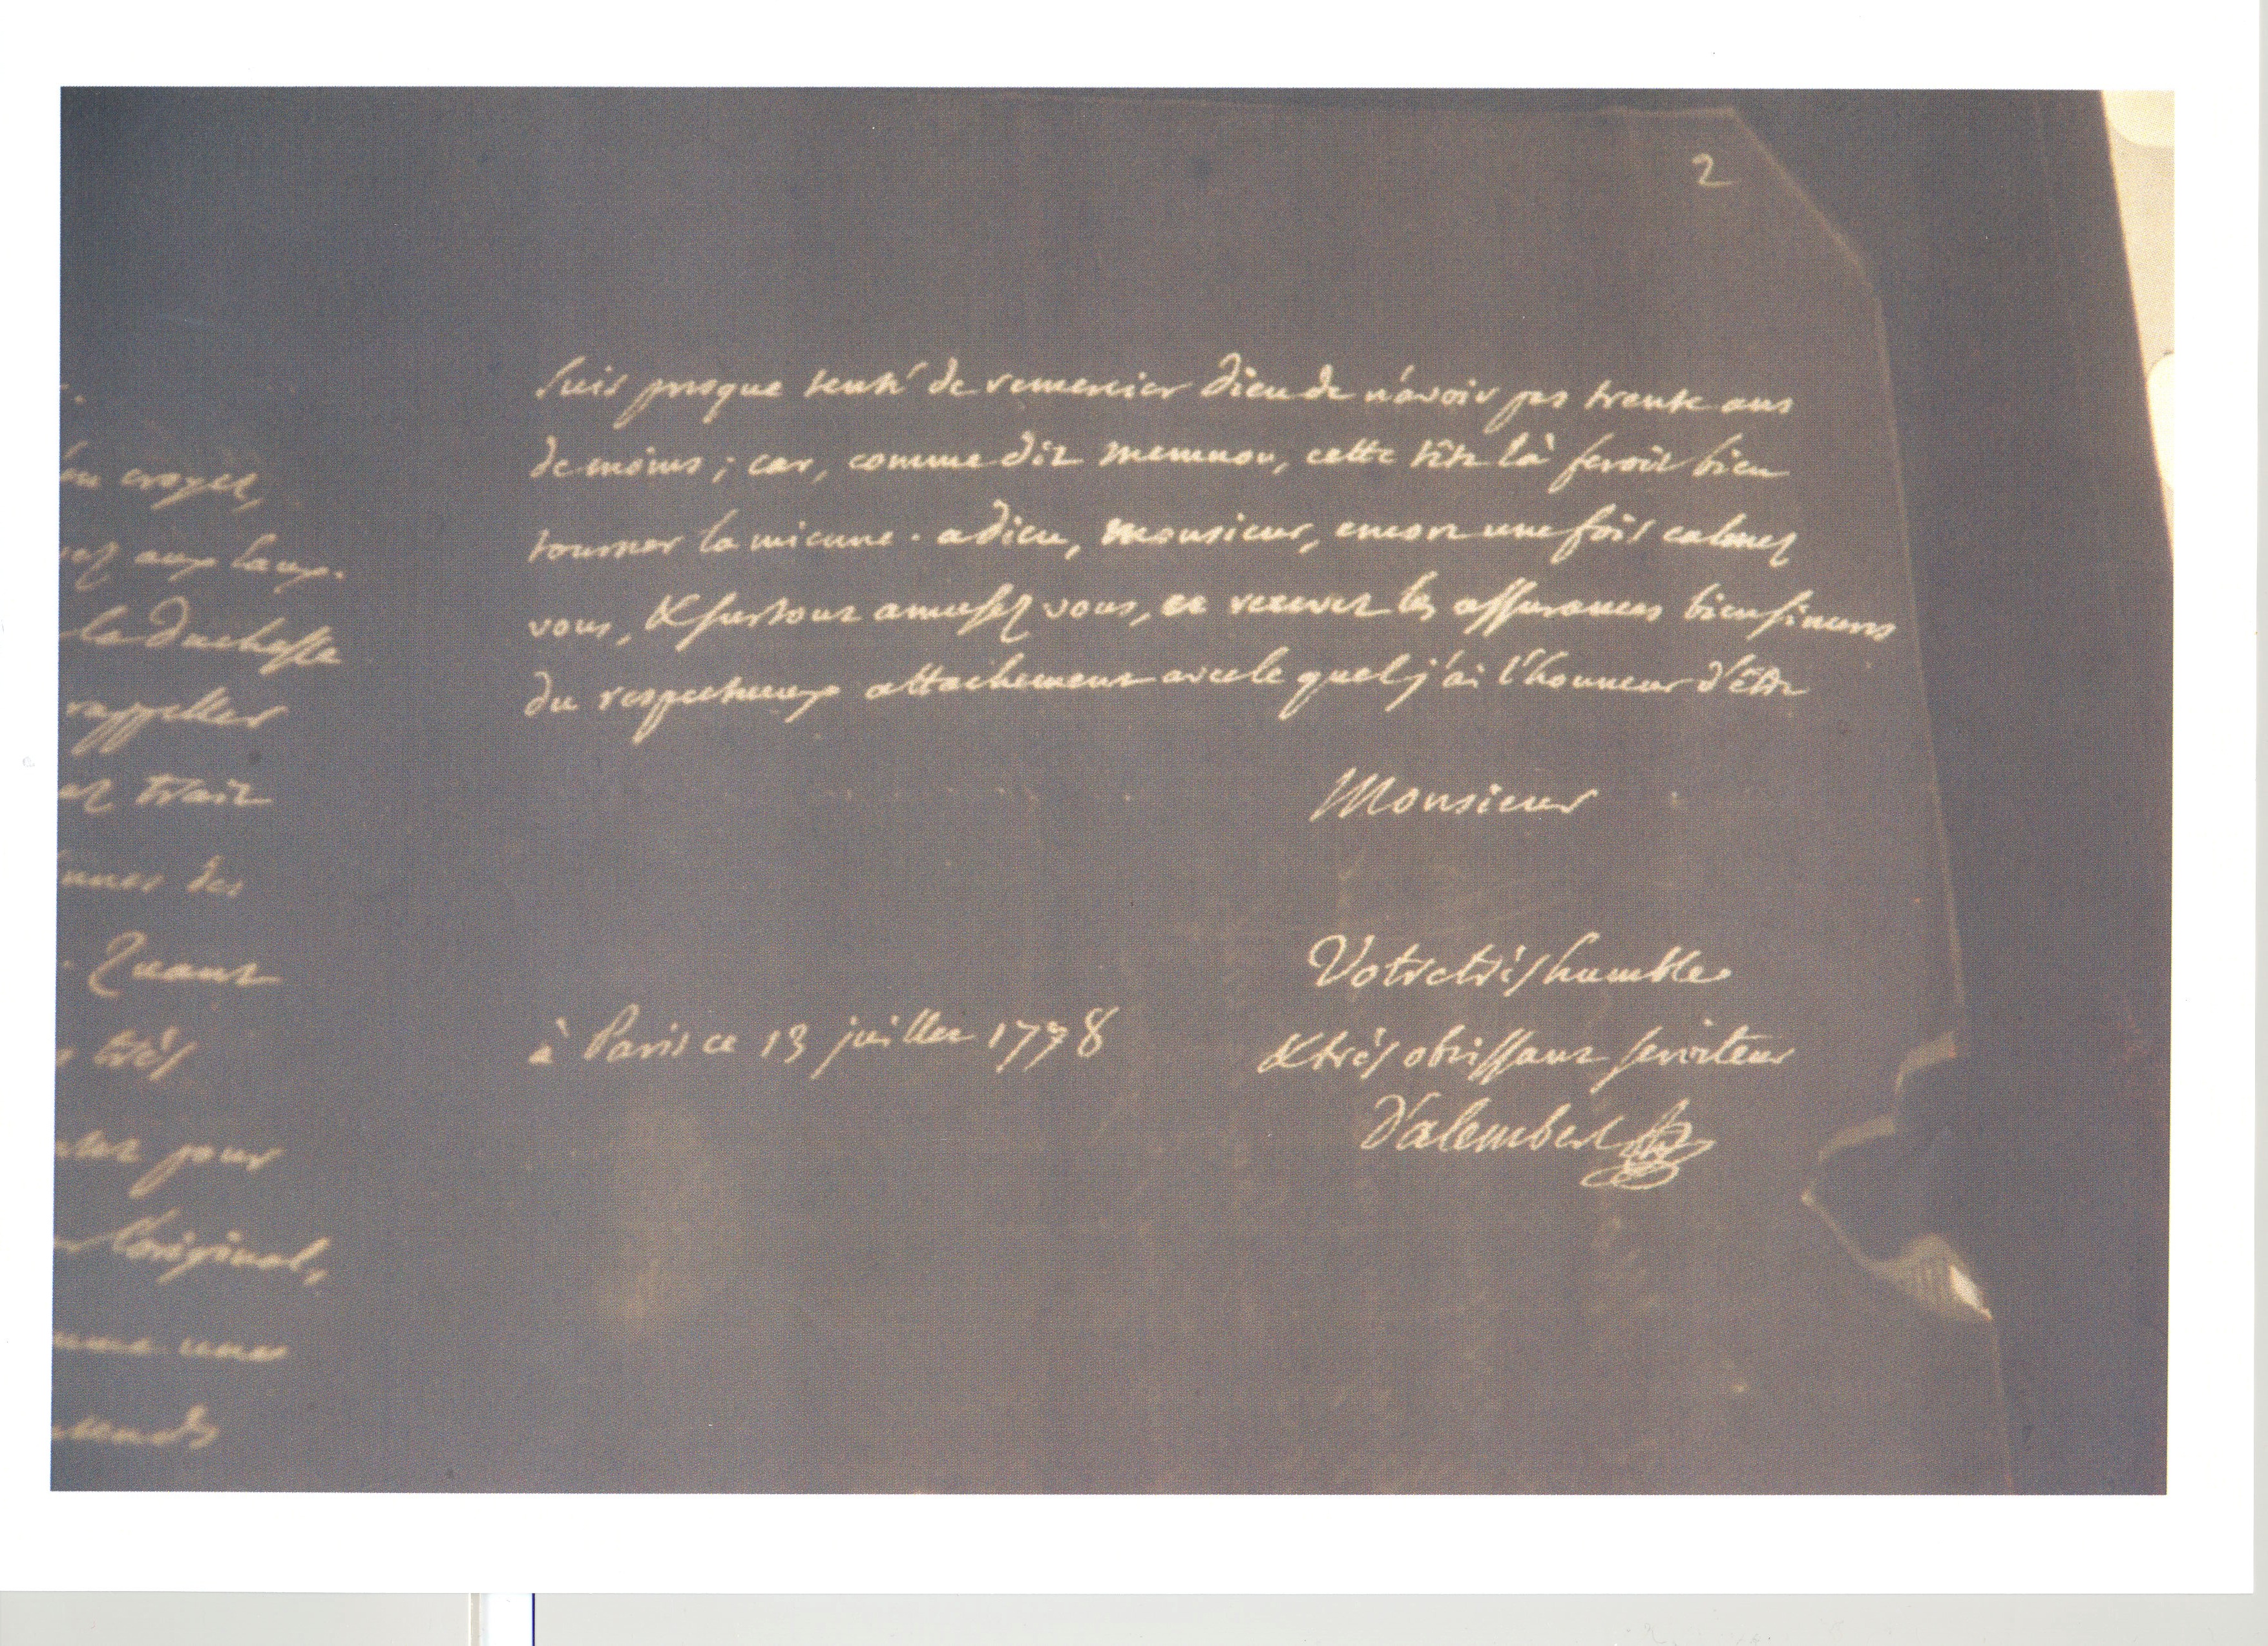 2
suis presque tenté de remercier dieu de n'avoir pas trente ans
de moins; car, comme dit memnon, cette tête là feroit bien
tourner la mienne. adieu, monsieur, encore une fois calmez
vous, & surtout amusez vous, et recevez les assurances bien sinceres
du respectueux attachement avec le quel j'ai l'honneur d'être
Monsieur
Votre très humble
& très obeissant serviteur
à Paris ce 13 juillet 1778
D'alembert
croyez,
aux eaux.
la duchesse
rappeller
trait
des
. Quant
très
pour
l'original,
une